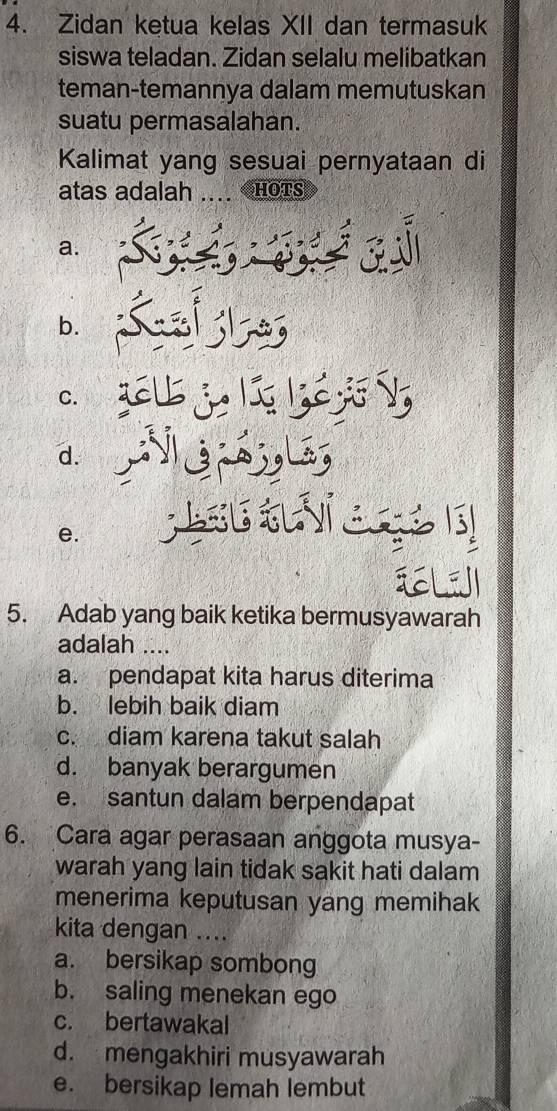 4. Zidan ketua kelas XII dan termasuk
siswa teladan. Zidan selalu melibatkan
teman-temannya dalam memutuskan
suatu permasalahan.
Kalimat yang sesuai pernyataan di
atas adalah .... HOTS
a. الَّذِيْنَ تُحِبُّوْنَهُمْ وَيُحِبُّوْنَكُمْ
b. وَشِرَارُ أَئِمَّتِكُمْ
c. وَلَا تَنْزِعُوْا يَدًا مِنْ طَاعَةٍ
d. وَشَاوِرْهُمْ فِي الْأَمْرِ
e. إِذَا ضُيِّعَتْ الْأَمَانَةُ فَانْتَظِرْ
السَّاعَةَ
5. Adab yang baik ketika bermusyawarah
adalah ....
a. pendapat kita harus diterima
b. lebih baik diam
c. diam karena takut salah
d. banyak berargumen
e. santun dalam berpendapat
6. Cara agar perasaan anggota musya-
warah yang lain tidak sakit hati dalam
menerima keputusan yang memihak
kita dengan ....
a. bersikap sombong
b. saling menekan ego
c. bertawakal
d. mengakhiri musyawarah
e. bersikap lemah lembut